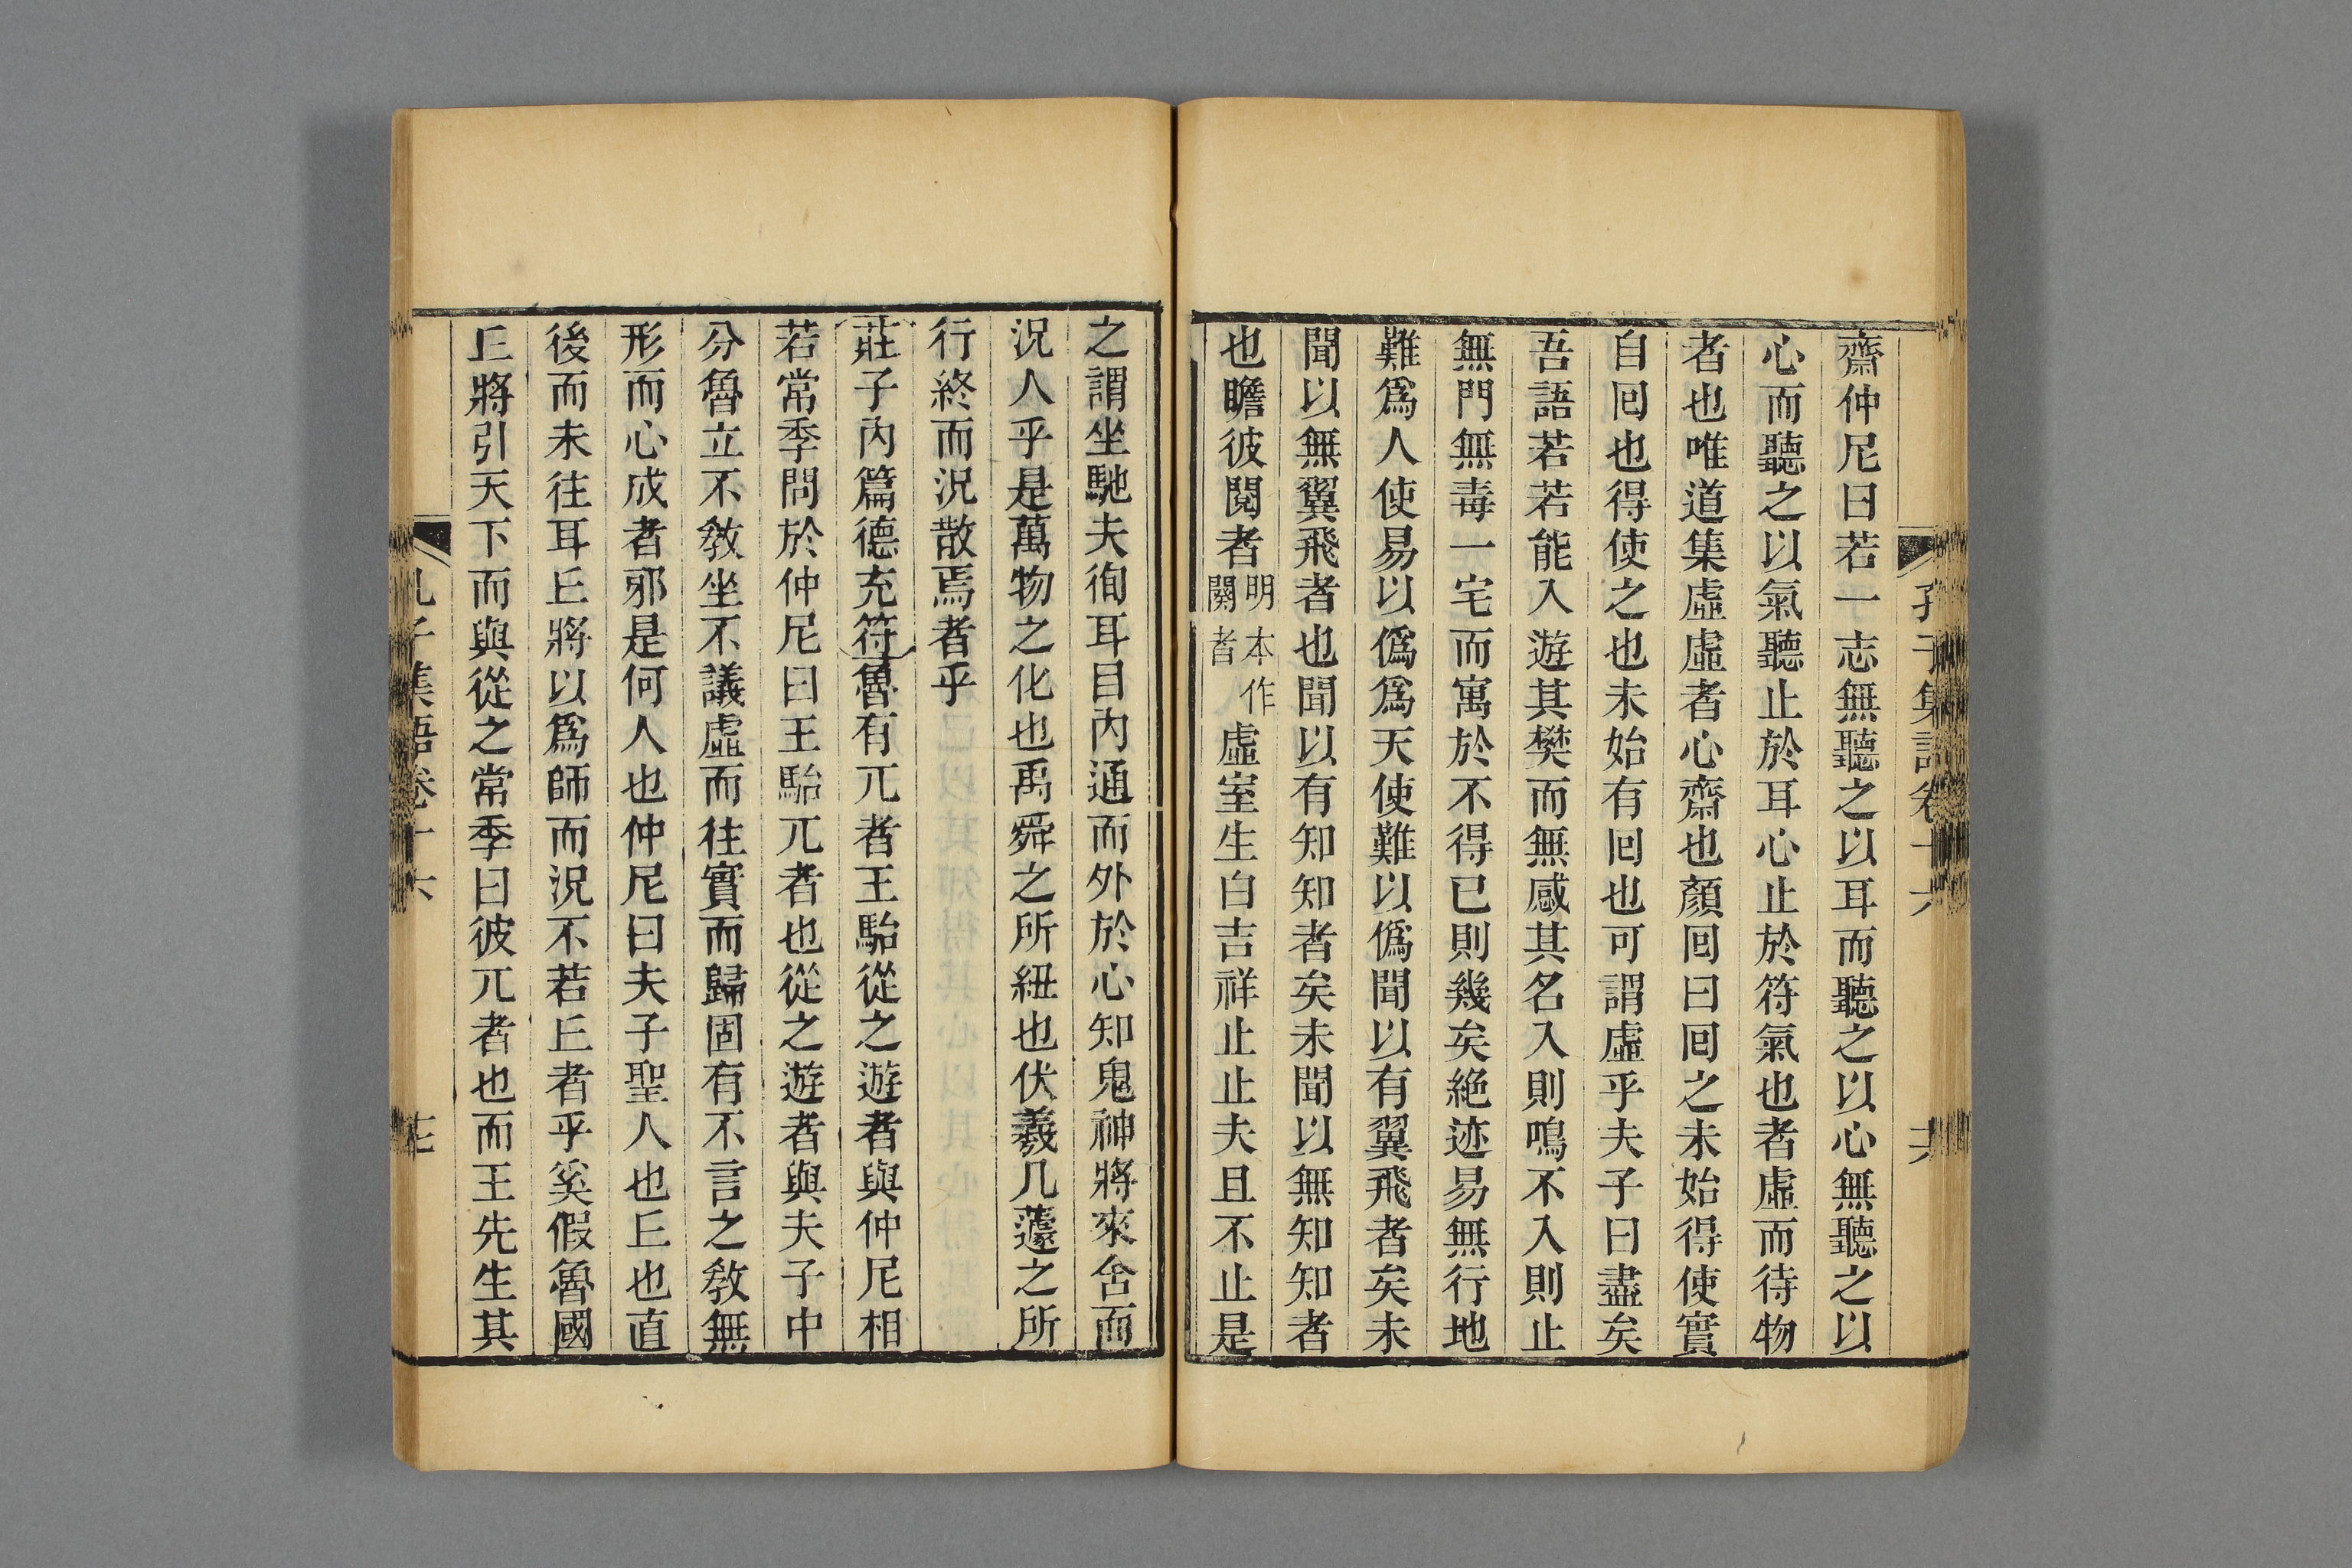 孔子集語卷十六
齋仲尼曰若一志無聽之以耳而聽之以心無聽之以
心而聽之以氣聽止於耳心止於符氣也者虛而待物
者也唯道集虛虛者心齋也顏囘曰囘之未始得使實
自囘也得使之也未始有囘也可謂虛乎夫子曰盡矣
吾語若若能入遊其樊而無感其名入則鳴不入則止
無門無毒一宅而寓於不得已則幾矣絕迹易無行地
難爲人使易以僞爲天使難以僞聞以有翼飛者矣未
聞以無翼飛者也聞以有知知者矣未聞以無知知者
也瞻彼閱者明本作闋者虛室生白吉祥止止夫且不止是
之謂坐馳夫徇耳目內通而外於心知鬼神將來舍而
況人乎是萬物之化也禹舜之所紐也伏羲几蘧之所
行終而況散焉者乎
莊子內篇德充符魯有兀者王駘從之遊者與仲尼相
若常季問於仲尼曰王駘兀者也從之遊者與夫子中
分魯立不敎坐不議虛而往實而歸固有不言之敎無
形而心成者邪是何人也仲尼曰夫子聖人也丘也直
後而未往耳丘將以爲師而況不若丘者乎奚假魯國
丘將引天下而與從之常季曰彼兀者也而王先生其
孔子集語卷十六